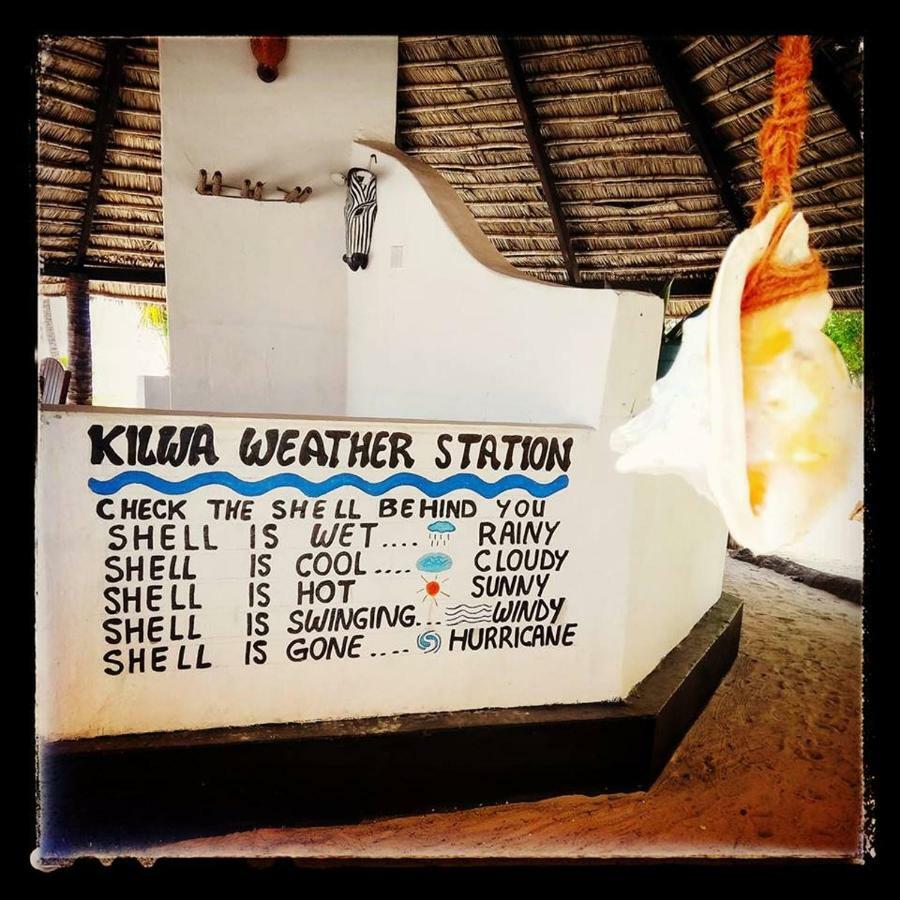 KILWA WEATHER STATION
CHECK THE SHELL BEHIND YOU
SHELL IS WET.... RAINY
SHELL IS COOL.... CLOUDY
SHELL IS HOT SUNNY
SHELL IS SWINGING... WINDY
SHELL IS GONE.... HURRICANE